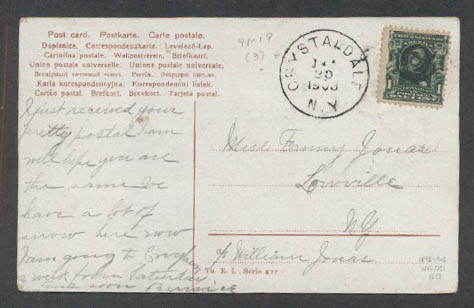 Post card. Postkarte. Carte postale.
Dopisnice. Correspondenzkarte. Levelező-Lap.
Cartolina postale. Weltpostverein. Briefkaart.
Union postale universelle. Unione postale universale.
Всемірный почтовый союзъ. Россія. Открытое письмо.
Karta korespondencyjna. Korrespondenční lístek.
Cartão postal. Brefkort. Brevkort. Tarjeta postal.
91-19
(3)
CRYSTALDALE
29
1908
N.Y.
1
I just received your
pretty postal I am
well hope you are
the same We
have a lot of
snow here now
I am going to
a week from Saturday
soon Bernice
Miss Fanny Jonas
Lowville
NY
℅ William Jonas
Th. E. L., Serie